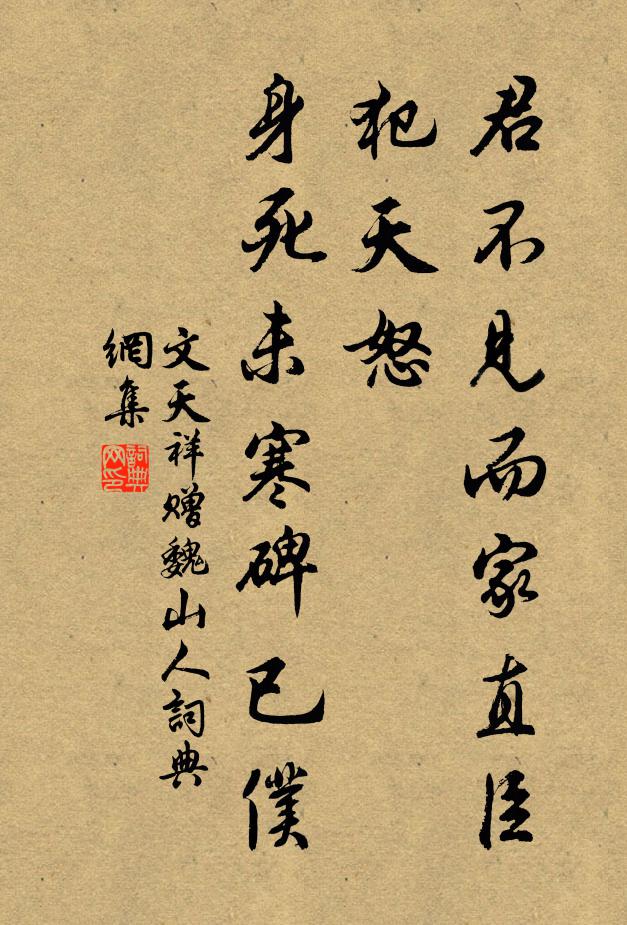 君不見而家直臣
犯天怒
身死未寒碑已僕
文天祥贈魏山人詞典
網集
詞典
網印